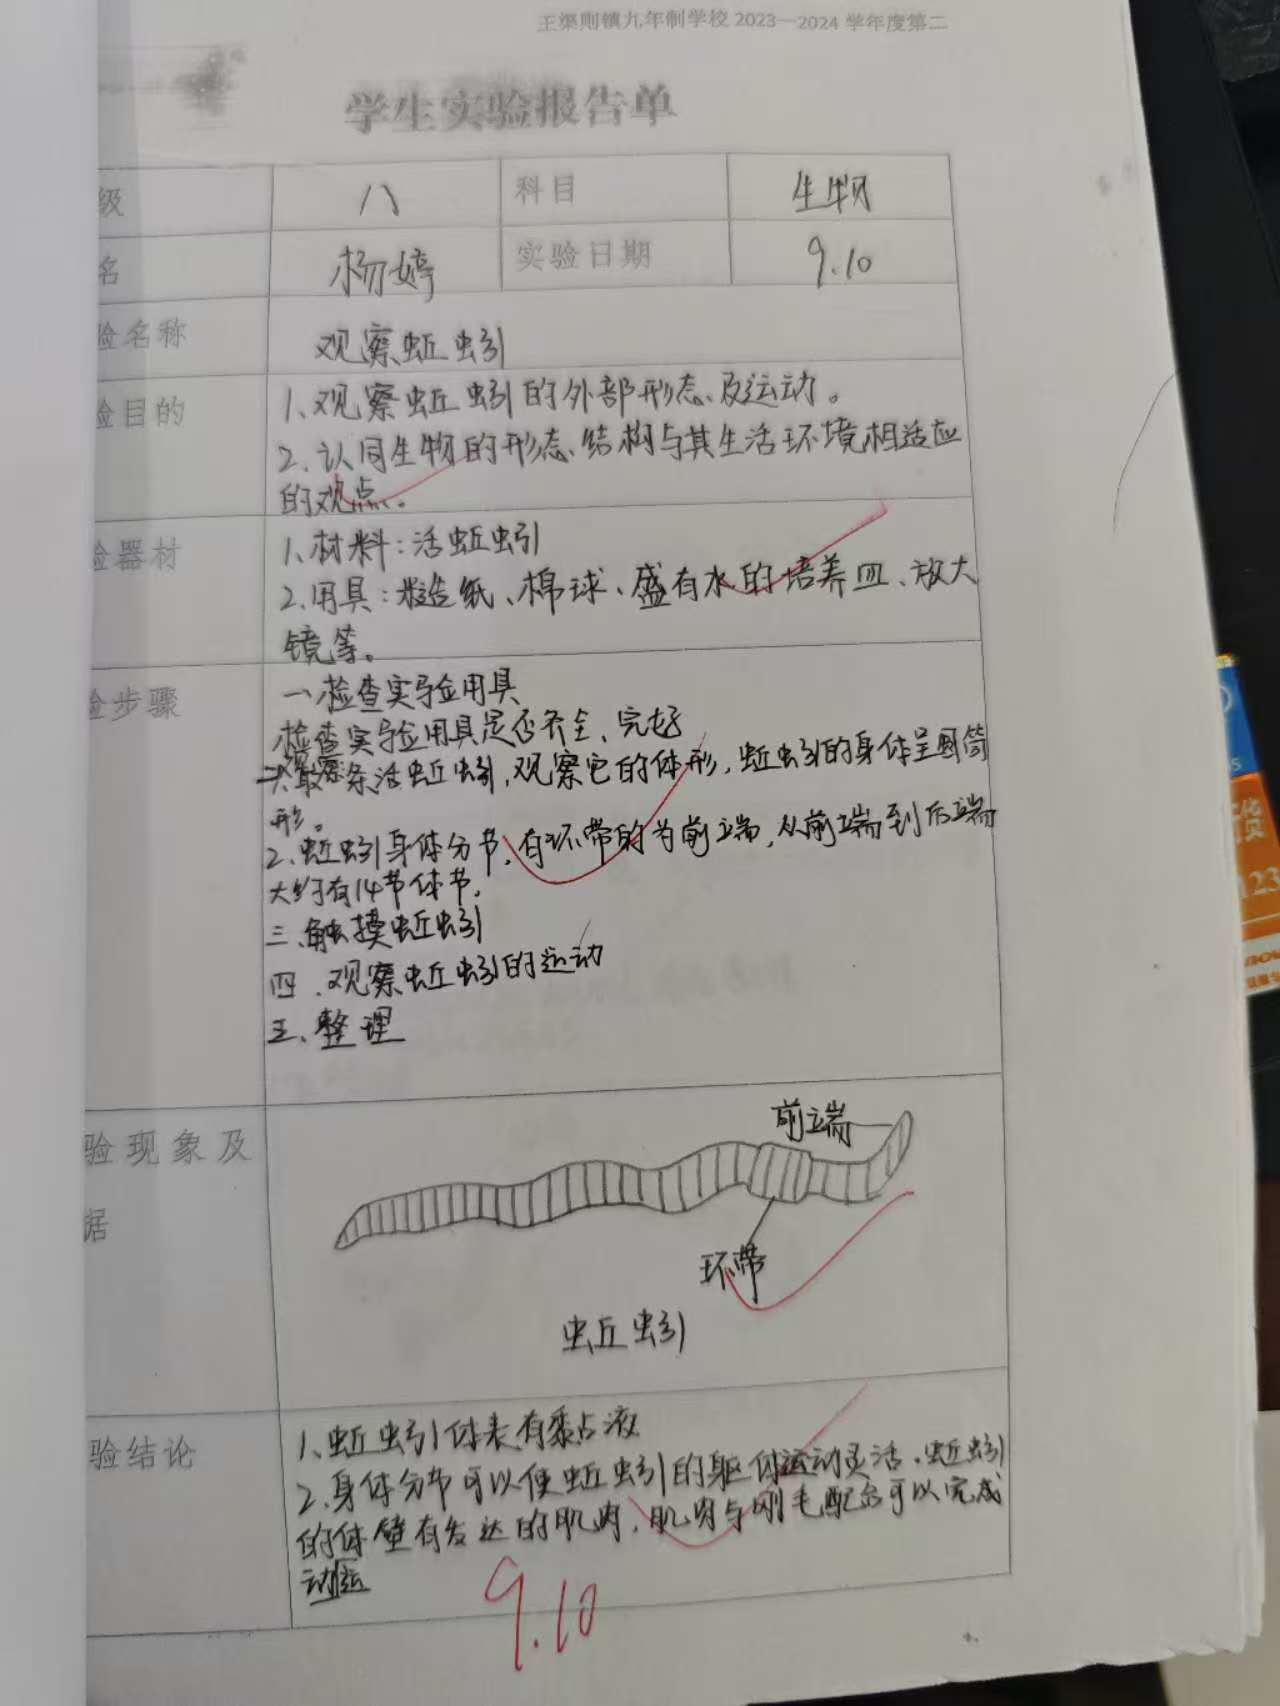 王渠则镇九年制学校 2023—2024 学年度第二
学生实验报告单
级 八 科目 生物
名 杨婷 实验日期 9.10
验名称 观察蚯蚓
验目的 1、观察蚯蚓的外部形态及运动。
2、认同生物的形态、结构与其生活环境相适应
的观点。
验器材 1、材料:活蚯蚓
2、用具:糙纸、棉球、盛有水的培养皿、放大
镜等。
验步骤 一、检查实验用具
检查实验用具是否齐全、完好
取条活蚯蚓,观察它的体形,蚯蚓的身体呈圆筒
形。
2、蚯蚓身体分节,有环带的为前端,从前端到后端
大约有14节体节,
三、触摸蚯蚓
四、观察蚯蚓的运动
五、整理
验现象及
据
前端
环带
蚯蚓
验结论 1、蚯蚓体表有黏液
2、身体分节可以使蚯蚓的躯体运动灵活,蚯蚓
的体壁有发达的肌肉,肌肉与刚毛配合可以完成
9.10